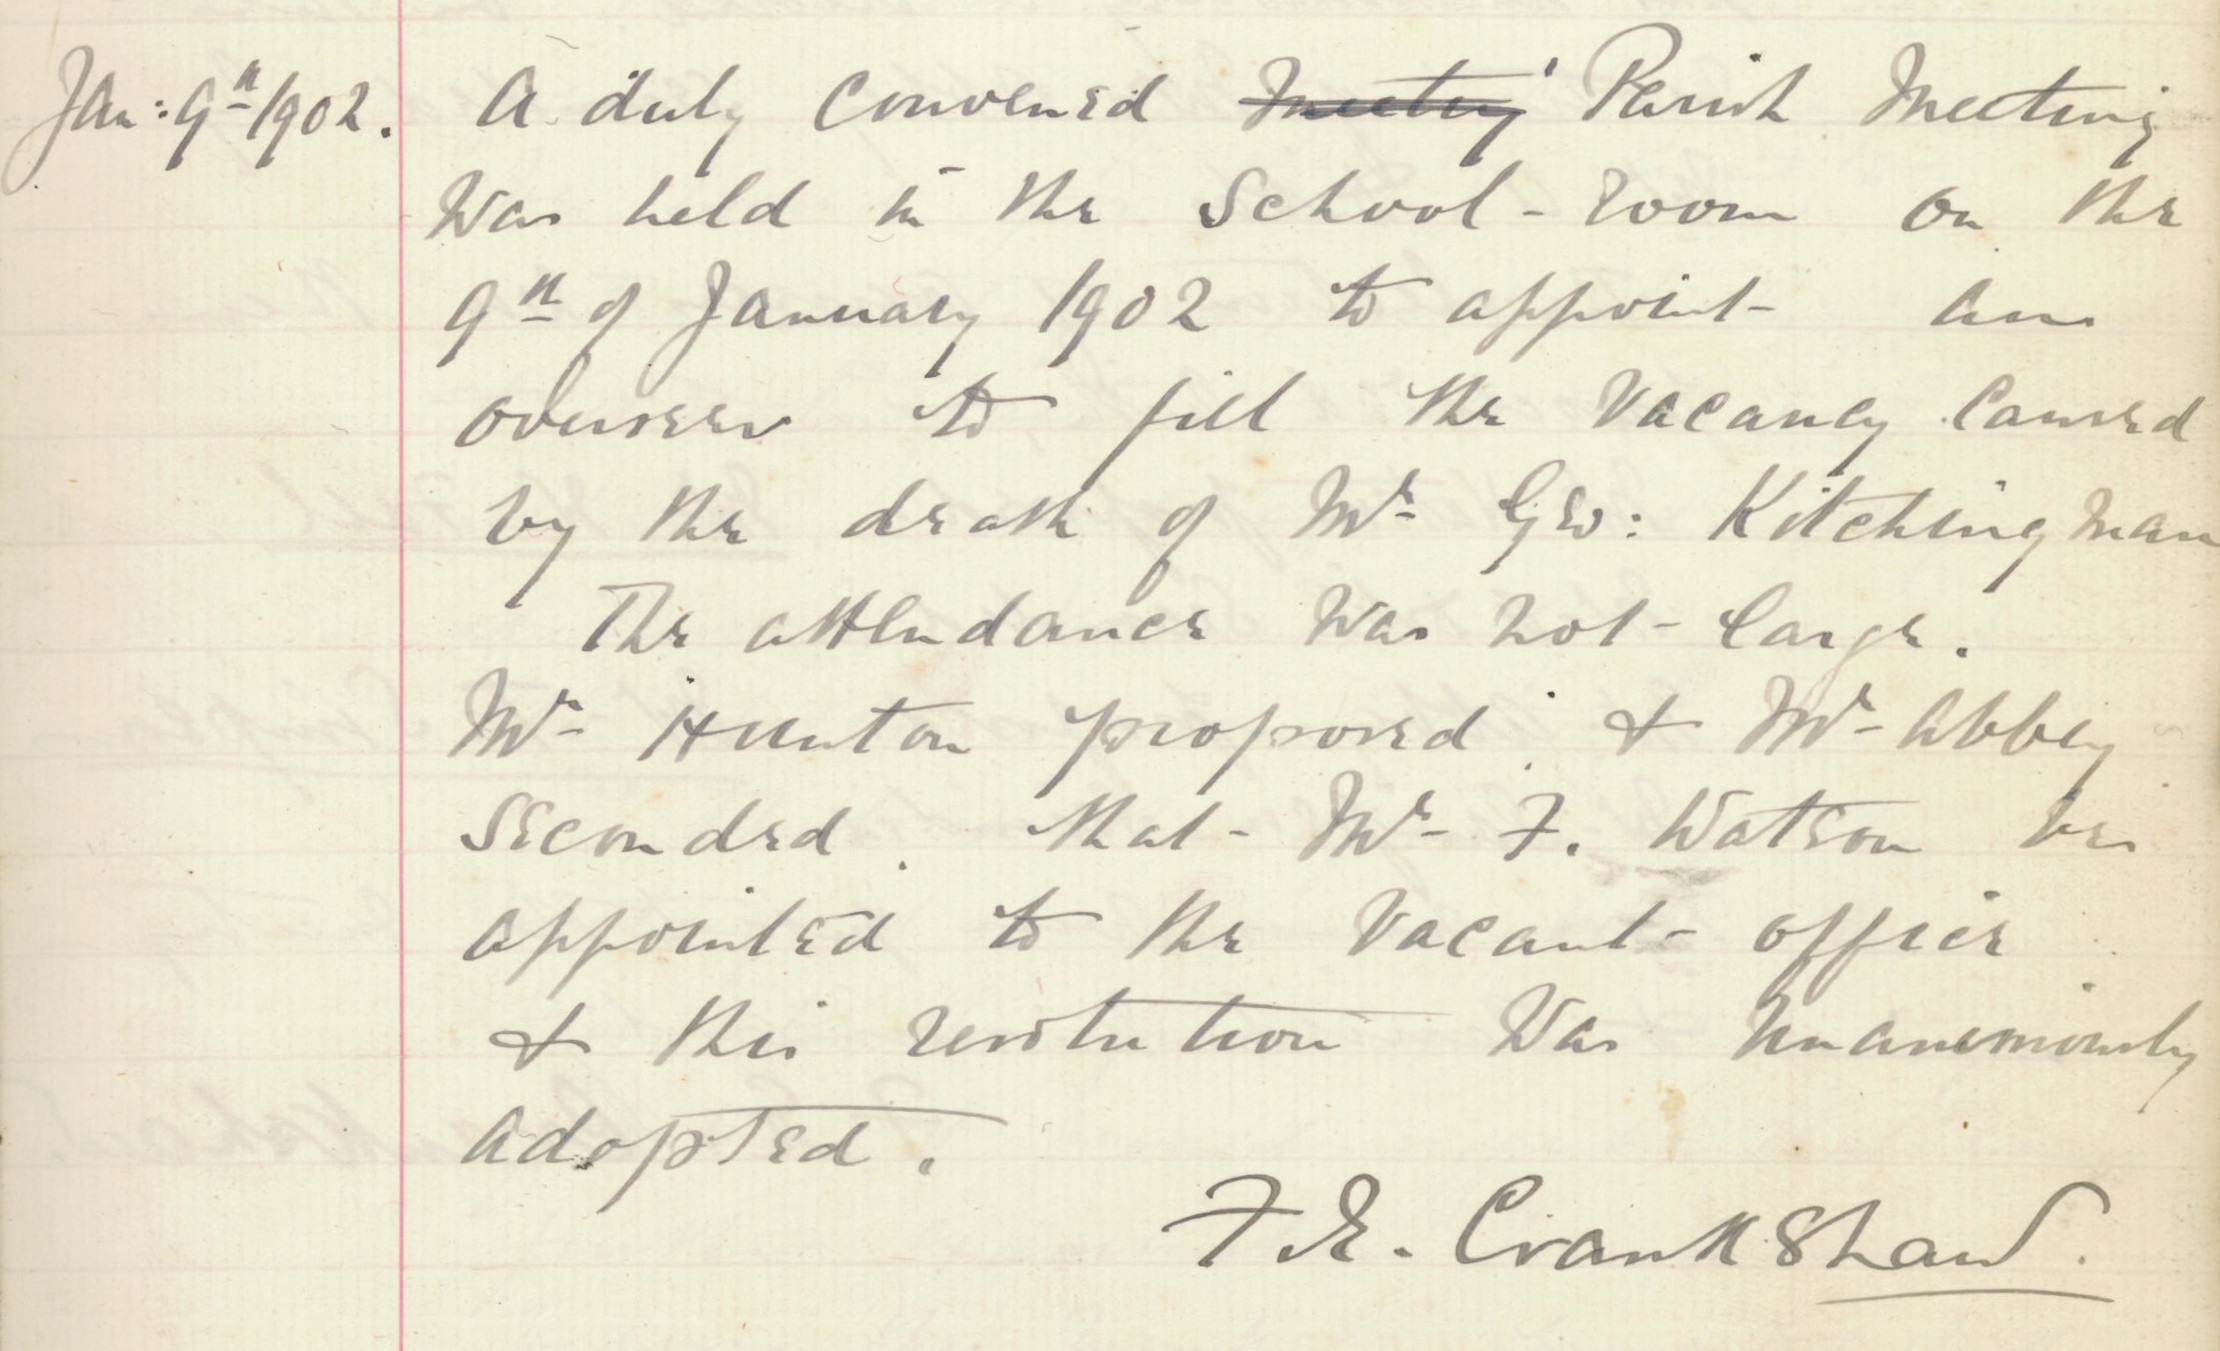 Jan: 9th 1902. A duly convened meeting Parish Meeting
was held in the School-room on the
9th of January 1902 to appoint an
overseer to fill the vacancy caused
by the death of Mr Geo: Kitchingman
The attendance was not large.
Mr Hunton proposed & Mr Abbey
seconded that Mr F. Watson be
appointed to the vacant office
& this resolution was unanimously
adopted.
F. E. Crankshaw.